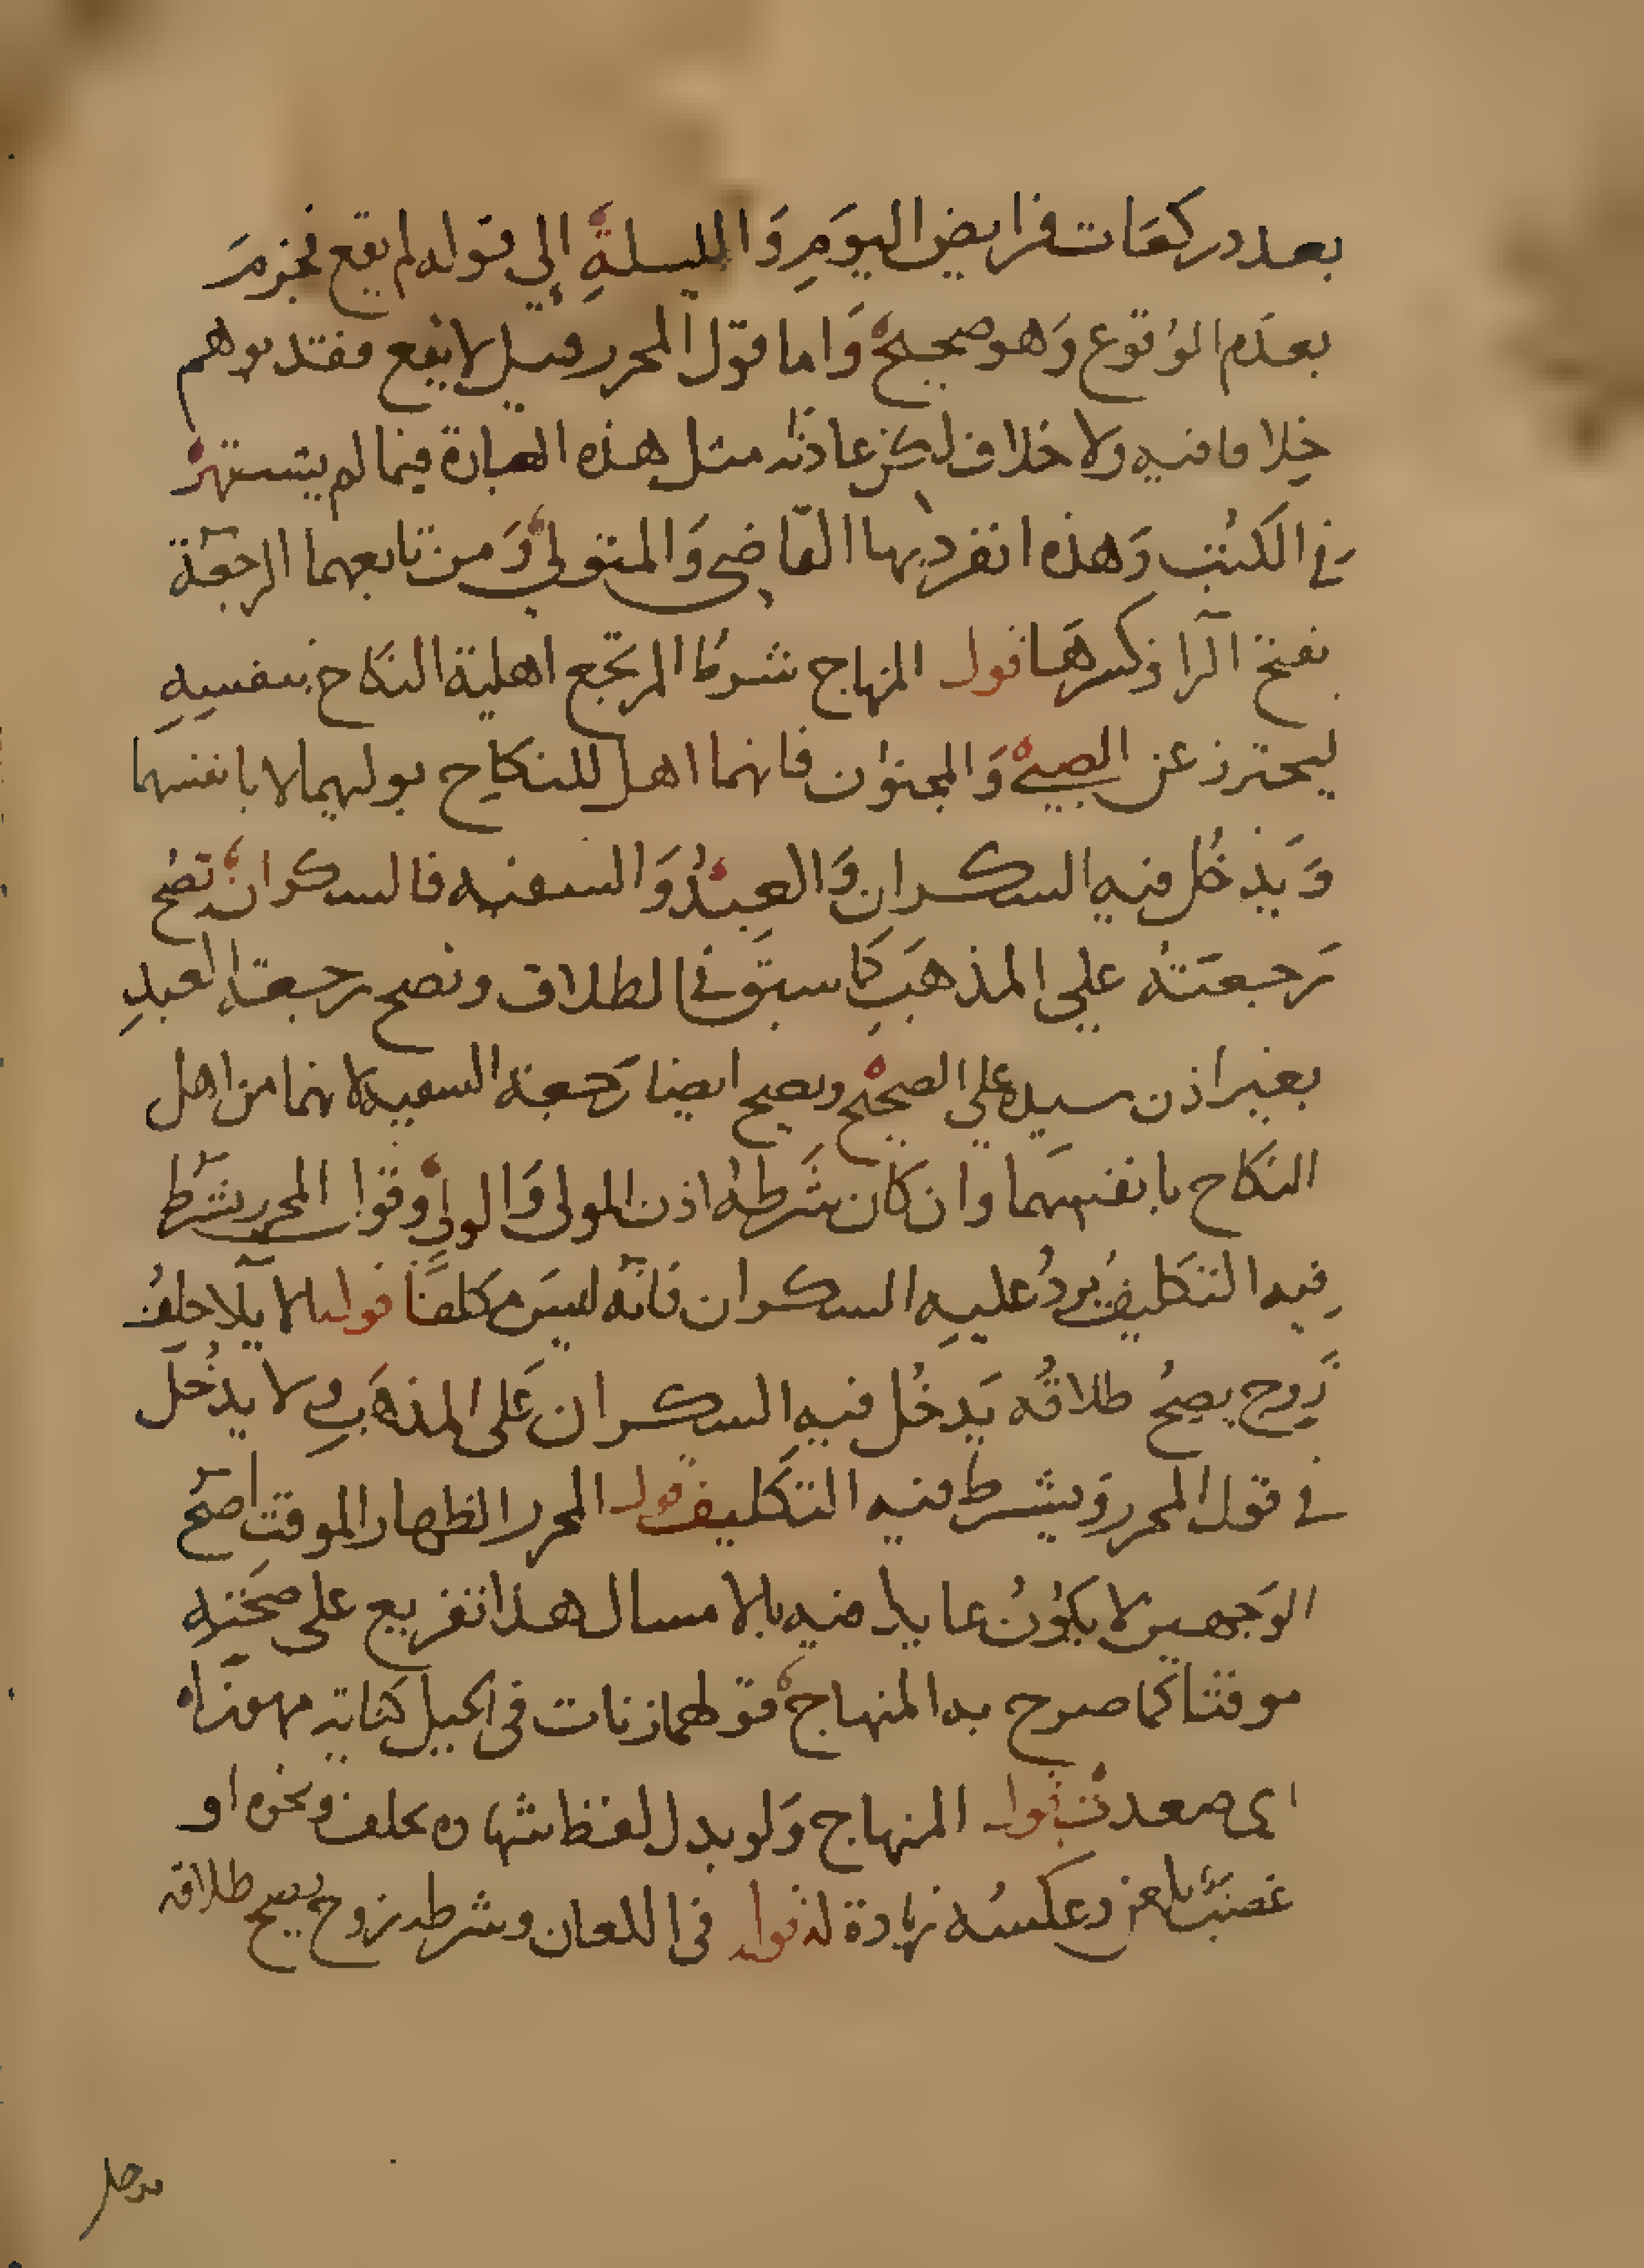 بعدد ركعات فرايض اليومِ وَالليلةِ إلي قوله لم يقع فجزمَ
بعدَم الوُقوع وَهو صحيحٌ وَاما قوَل المحرر قيل لا يقع فقد يوهم
خِلافا فيه ولا خلاف لكن عادته مثل هذه العبارة فيما لم يشتهر
في الكتُب وَهذه انفردَ بها القاضي وَالمتولي وَمن تابعهما الرجعَة
بفتح الرا وكسرهَا قوله المنهاج شرط المرتجع اهلية النكاح بنفسِهِ
ليحترز عن الصبي وَالمجنون فانهما اهل للنكاح بوليهما لا بانفسهما
وَيَدخُل فيه السكران وَالعبدُ وَالسفيه فالسكران تصُح
رَجعَتهُ علي المذهَبِ كَما سبقَ في الطلاق وتصح رجعة العبدِ
بغير اذن سيده علي الصحيح وتصح ايضا رَجعة السفيه لانهما من اهل
النكاح بانفسهمَا وان كان شَرطهُ اذن المولي وَالولي وقول المحرر يشترط
فيه التكليف يردُ عليه السكران فانه ليسَ مكلفًا قوله الايلا حلِفُ
زَوج يصِحُ طلاقُه يَدخُل فيه السكران عَلي المذهَبِ ولا يدخُل
في قول المحرر ويشترط فيه التكليف قوله المحرر الظهار الموقت اصح
الوَجهين لا يكوُنُ عايدا فيه بالامساك هذا تفريع علي صحَتهِ
موقتا كما صرح به المنهاج قوَلهما زنات في الجبل كناية مهموزاه
اي صعدت قوله المنهاج وَلو بدل لفظ شهاده بحلف ونحوه او
غضبٌ بلعن وعكسُه زيادة له قوله في اللعان وشرطه زوج يصح طلاقه
يدخل